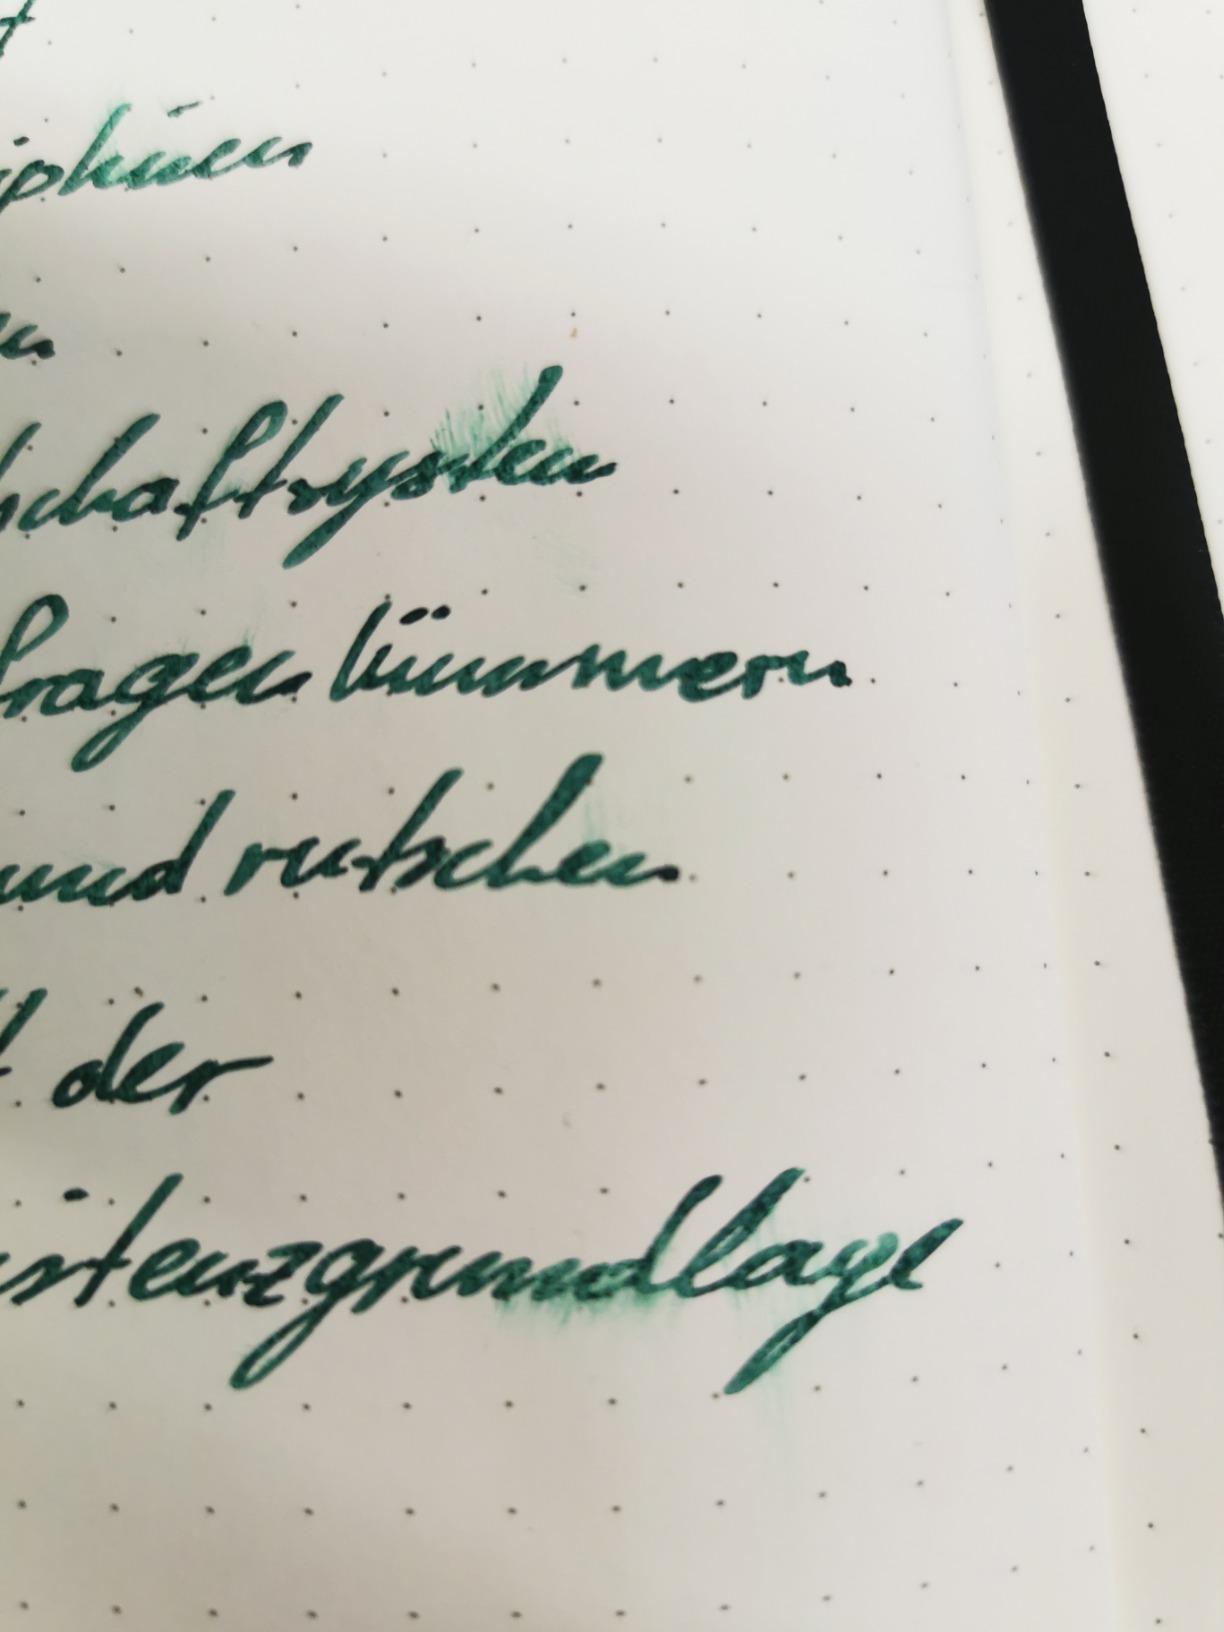 t
iplinen
en
schaftssystem
fragen kümmern
und rutschen
t der
istenzgrundlage